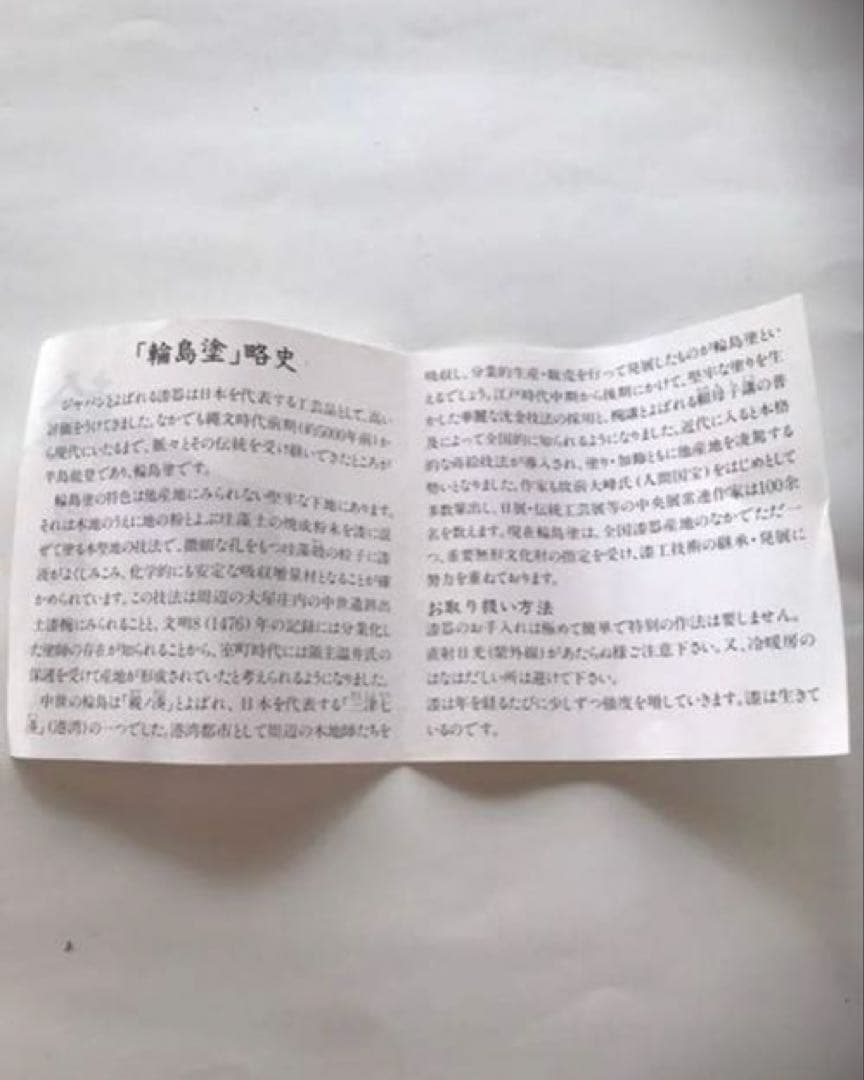 「輪島塗」略史
ジャパンとよばれる漆器は日本を代表する工芸品として、高い
評価をうけてきました。なかでも縄文時代前期(約5000年前)か
ら現代にいたるまで、脈々とその伝統を受け継いできたところが
半島能登であり、輪島塗です。
輪島塗の特色は他産地にみられない堅牢な下地にあります。
それは木地のうえに地の粉とよぶ珪藻土の焼成粉末を漆に混
ぜて塗る本堅地の技法で、微細な孔をもつ珪藻殻の粒子に漆
液がよくしみこみ、化学的にも安定な吸収増量材となることが確
かめられています。この技法は周辺の大塚庄内の中世遺跡出
土漆椀にみられることと、文明8(1476)年の記録には分業化し
た塗師の存在が知られることから、室町時代には領主温井氏の
保護を受けて産地が形成されていたと考えられるようになりました。
中世の輪島は「親ノ湊」とよばれ、日本を代表する「三津七
湊」(港湾)の一つでした。港湾都市として周辺の木地師たちを
吸収し、分業的生産・販売を行って発展したものが輪島塗とい
えるでしょう。江戸時代中期から後期にかけて、堅牢な塗りを生
かした華麗な沈金技法の採用と、椀講とよばれる頼母子講の普
及によって全国的に知られるようになりました。近代に入ると本格
的な蒔絵技法が導入され、塗り・加飾ともに他産地を凌駕する
勢いとなりました。作家も故前大峰氏(人間国宝)をはじめとして
多数輩出し、日展・伝統工芸展等の中央展常連作家は100余
名を数えます。現在輪島塗は、全国漆器産地のなかでただ一
つ、重要無形文化財の指定を受け、漆工技術の継承・発展に
努力を重ねております。
お取り扱い方法
漆器のお手入れは極めて簡単で特別の作法は要しません。
直射日光(紫外線)があたらぬ様ご注意下さい。又、冷暖房の
はなはだしい所は避けて下さい。
漆は年を経るたびに少しずつ強度を増していきます。漆は生きて
いるのです。